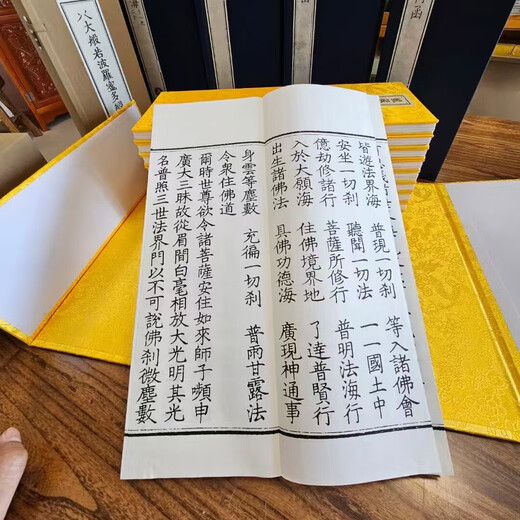 皆遊法界海　普現一切剎　等入諸佛會
安坐一切剎　聽聞一切法　一一國土中
億劫修諸行　菩薩所修行　普明法海行
入於大願海　住佛境界地　了達普賢行
出生諸佛法　具佛功德海　廣現神通事
身雲等塵數　充徧一切剎　普雨甘露法
令衆住佛道
爾時世尊欲令諸菩薩安住如來師子嚬申
廣大三昧故從眉間白毫相放大光明其光
名普照三世法界門以不可說佛剎微塵數
大般若波羅蜜多經
函